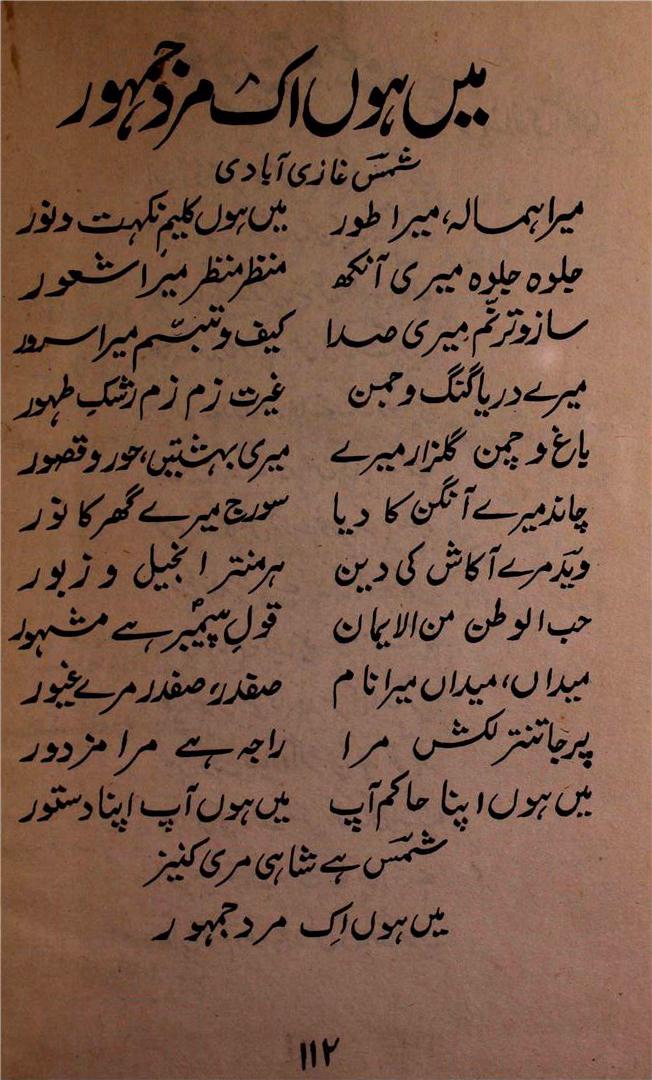 میں ہوں اک مردِ جمہور
شمسؔ غازی آبادی
میرا ہمالہ، میرا طور میں ہوں کلیمِ نکہت و نور
جلوہ جلوہ میری آنکھ منظر منظر میرا شعور
ساز و ترنّم میری صدا کیف و تبسّم میرا سرور
میرے دریا گنگ و جمن غیرت زم زم رشکِ طہور
باغ و چمن گلزار میرے میری بہشتیں، حور و قصور
چاند میرے آنگن کا دیا سورج میرے گھر کا نور
ویدؔ مرے آکاش کی دین ہر منتر انجیل و زبور
حب الوطن من الایمان قولِ پیمبرؐ ہے مشہور
میداں، میداں میرا نام صفدر، صفدر مرے غیور
پرجاتنتر لکش مرا راجہ ہے مرا مزدور
میں ہوں اپنا حاکم آپ میں ہوں آپ اپنا دستور
شمسؔ ہے شاہی مری کنیز
میں ہوں اِک مرد جمہور
۱۱۲